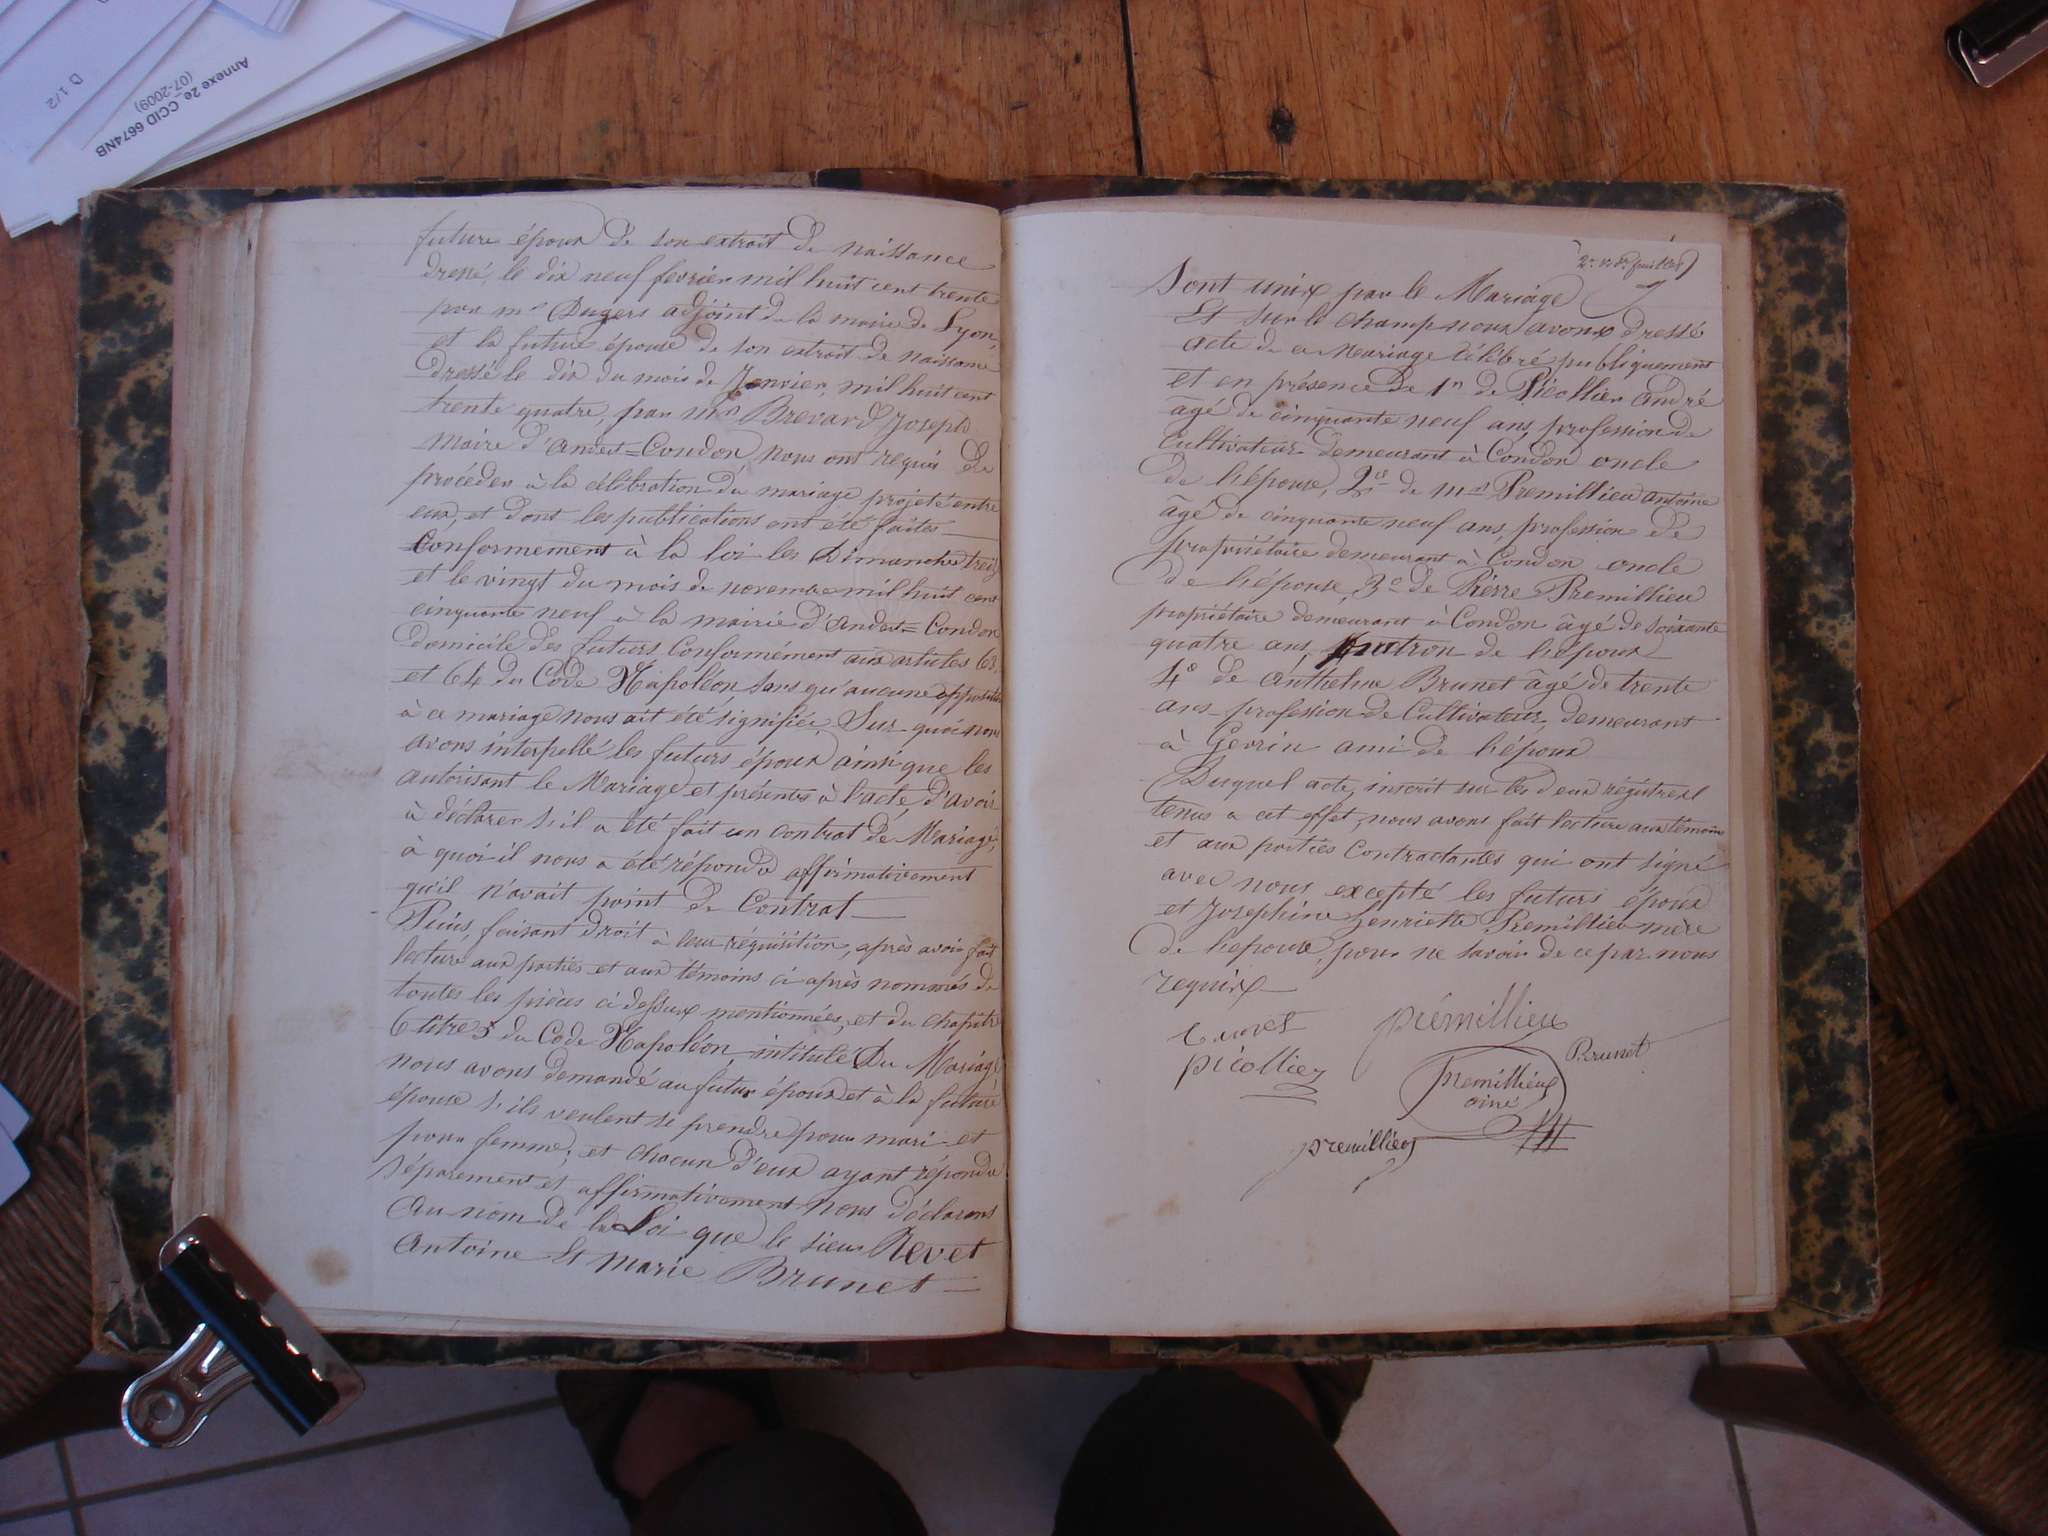 D 1/2
Annexe 2e CCID 6674NB
(07-2009)
future époux de son extrait de naissance
dressé, le dix neuf fevrier mil huit cent trente
par mr Dugers adjoint de la mairie de Lyon,
et la future épouse de son extrait de naissance
dressé le dix du mois de Janvier, mil huit cent
trente quatre, par mr Brevard Joseph
Maire d'Andert=Condon, nous ont requis de
procéder à la célébration du mariage projeté entre
eux, et dont les publications ont été faites
Conformement à la loi les Dimanches treize
et le vingt du mois de novembre mil huit cent
cinquante neuf à la mairie d'Andert=Condon
domicile des futurs Conformément aux articles 63.
et 64 du Code Napoléon, sans qu'aucune opposition
à ce mariage nous ait été signifiée, Sur quoi nous
avons interpellé les futurs époux ainsi que les
autorisant le Mariage et présents à l'acte d'avoir
à déclarer s'il a été fait un contrat de Mariage,
à quoi il nous a été répondu affirmativement
qu'il n'avait point de Contrat
Puis, faisant droit à leur réquisition, après avoir fait
lecture aux parties et aux témoins ci après nommés de
toutes les pièces ci dessus mentionnées, et du chapitre
6 titre 5 du Code Napoléon, intitulé Du Mariage
nous avons demandé au futur époux et à la future
épouse s'ils veulent se prendre pour mari et
pour femme; et chacun d'eux ayant répondu
séparement et affirmativement nous déclarons
Au nom de la Loi que le sieur Revet
Antoine Et Marie Brunet
Sont unis par le Mariage
Et sur le champ nous avons dressé
acte de ce Mariage célébré publiquement
et en présence de 1n de Picollier André
âgé de cinquante neuf ans, profession de
Cultivateur demeurant à Condon oncle
de l'épouse, 2e de mr Premillieu Antoine
âgé de cinquante neuf ans, profession de
propriétaire demeurant à Condon oncle
de l'épouse, 3e de Pierre Premillieu
propriétaire demeurant à Condon âgé de soixante
quatre ans, patron de l'époux
4e de Anthelme Brunet âgé de trente
ans profession de Cultivateur, demeurant
à Gevrin ami de l'époux
Duquel acte, inscrit sur les deux régitres
tenus a cet effet, nous avons fait lecture aux témoins
et aux parties Contractantes qui ont signé
avec nous excepté les futurs époux
et Josephine Henriette Premillieu mère
de l'epouse, pour ne savoir de ce par nous
requis
prémillieu
picollier
Brunet
premillieu
ainé
premillieu